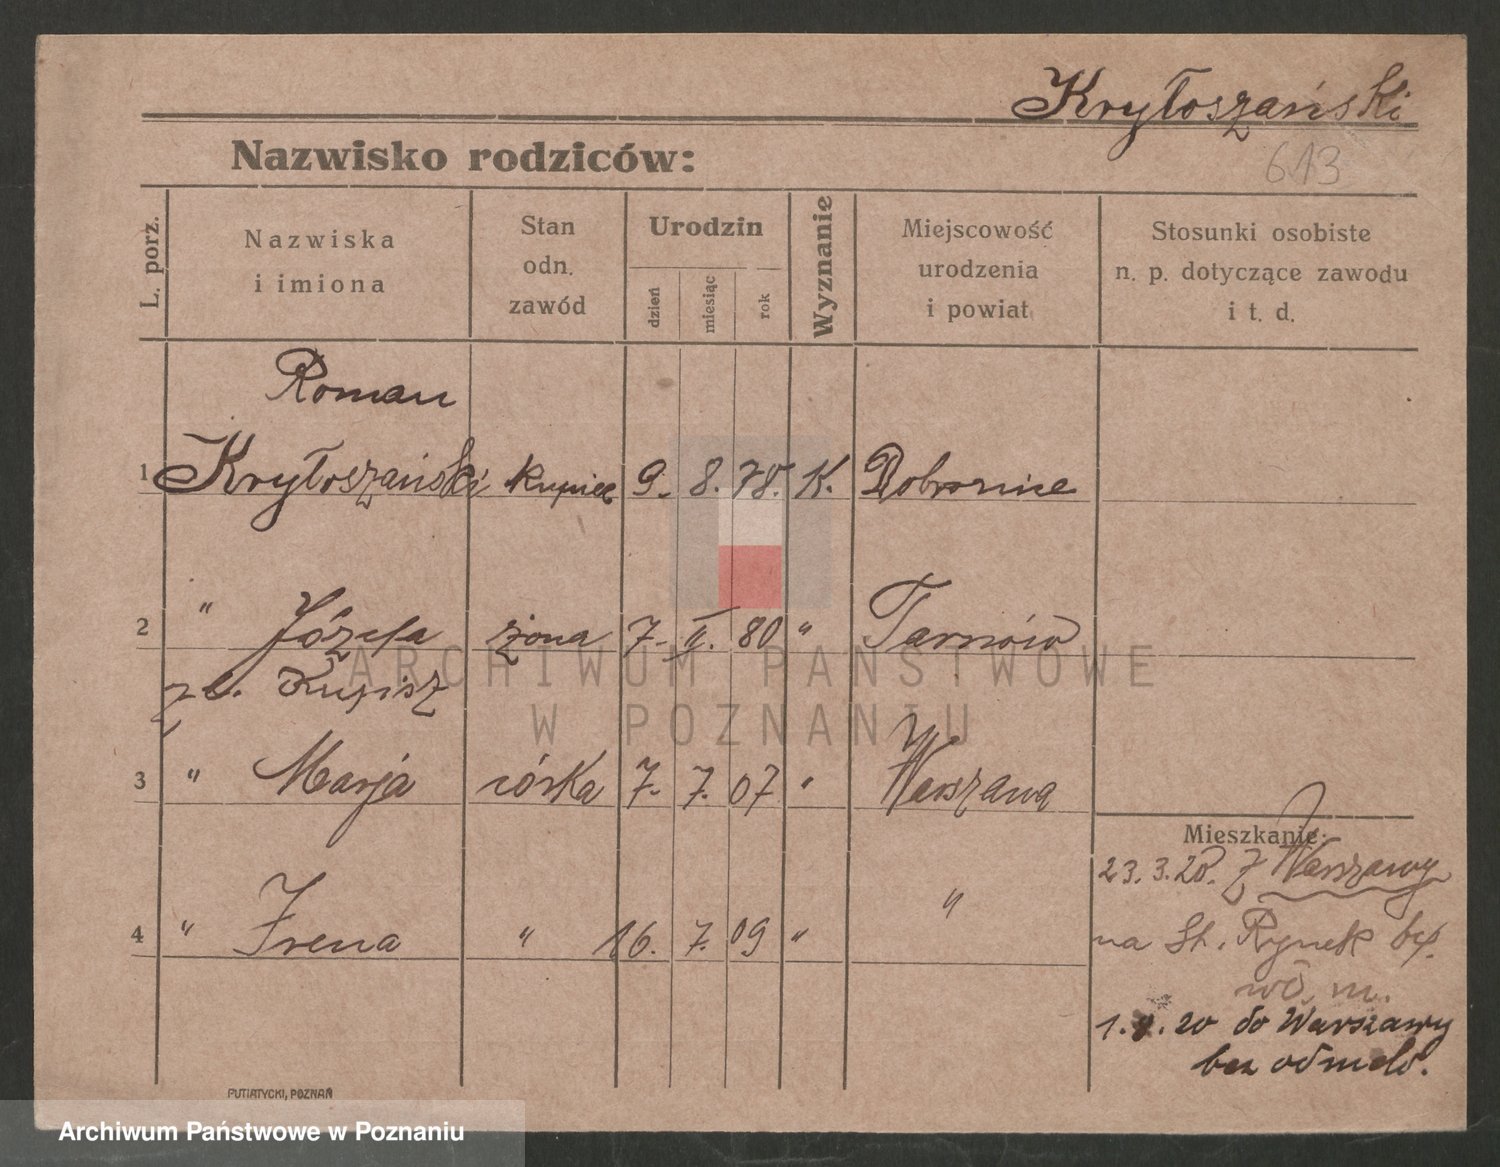 Kryłoszański
613
Nazwisko rodziców:
L. porz.
Nazwiska
i imiona
Stan
odn.
zawód
Urodzin
dzień
miesiąc
rok
Wyznanie
Miejscowość
urodzenia
i powiat
Stosunki osobiste
n. p. dotyczące zawodu
i t. d.
Roman
1 Kryłoszański kupiec 9. 8. 78. K.
2 " Józefa żona 7. II. 80 " Tarnów
Kupisz
3 " Marja córka 7. 7. 07 " Warszawa
4 " Irena " 16. 7. 09 " "
Mieszkanie
23. 3. 20. z Warszawy
na St. Rynek
m.
20 do Warszawy
bez odmeld.
PUTIATYCKI, POZNAŃ
ARCHIWUM PAŃSTWOWE
W POZNANIU
Archiwum Państwowe w Poznaniu